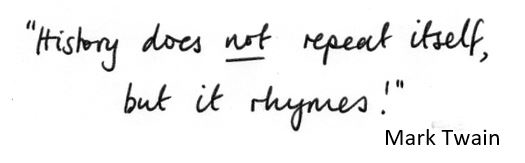 "History does not repeat itself,
but it rhymes!"
Mark Twain